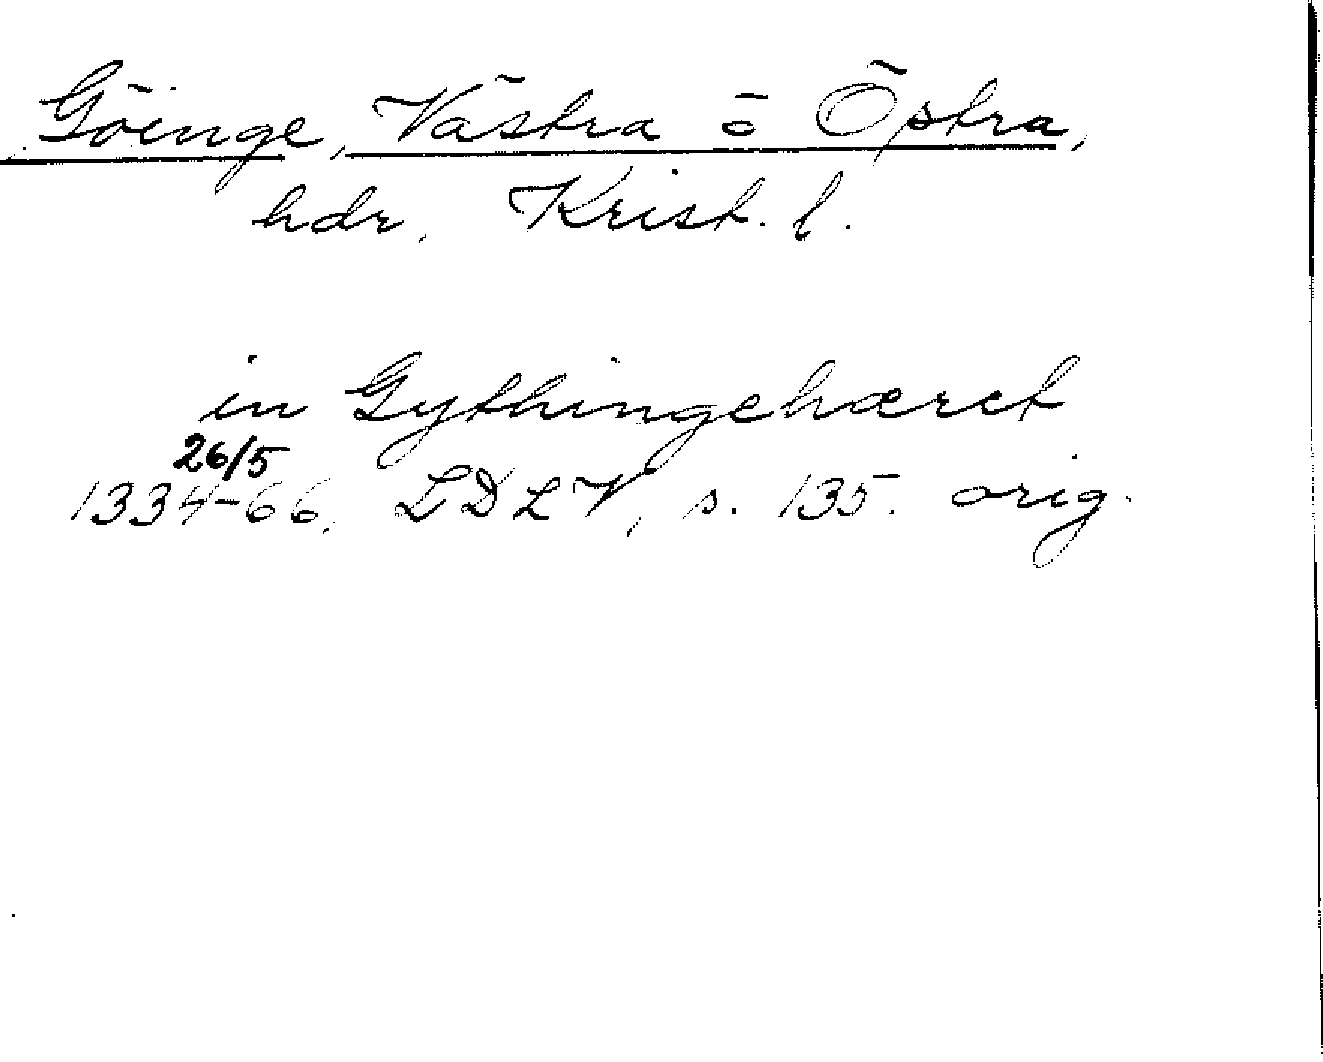 Göinge, Västra o Östra,
hdr, Krist. l.
in Gythingehæret
26/5
1334-66. LDLV, s. 135. orig.